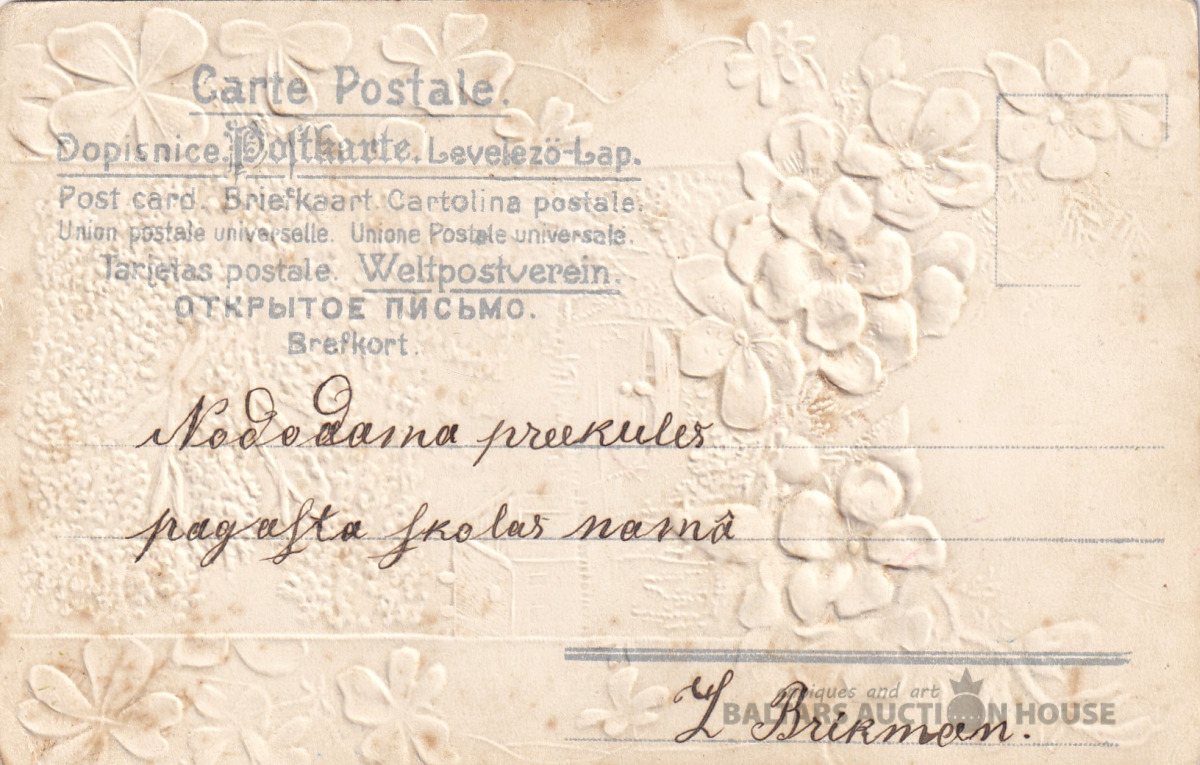 Carte Postale.
Dopisnice. Postkarte. Levelező-Lap.
Post card. Briefkaart. Cartolina postale.
Union postale universelle. Unione Postale universale.
Tarjetas postale. Weltpostverein.
ОТКРЫТОЕ ПИСЬМО.
Brefkort.
Nododama preekules
pagaſta ſkolas namâ
antiques and art
BALTARS AUCTION HOUSE
L Brikman.